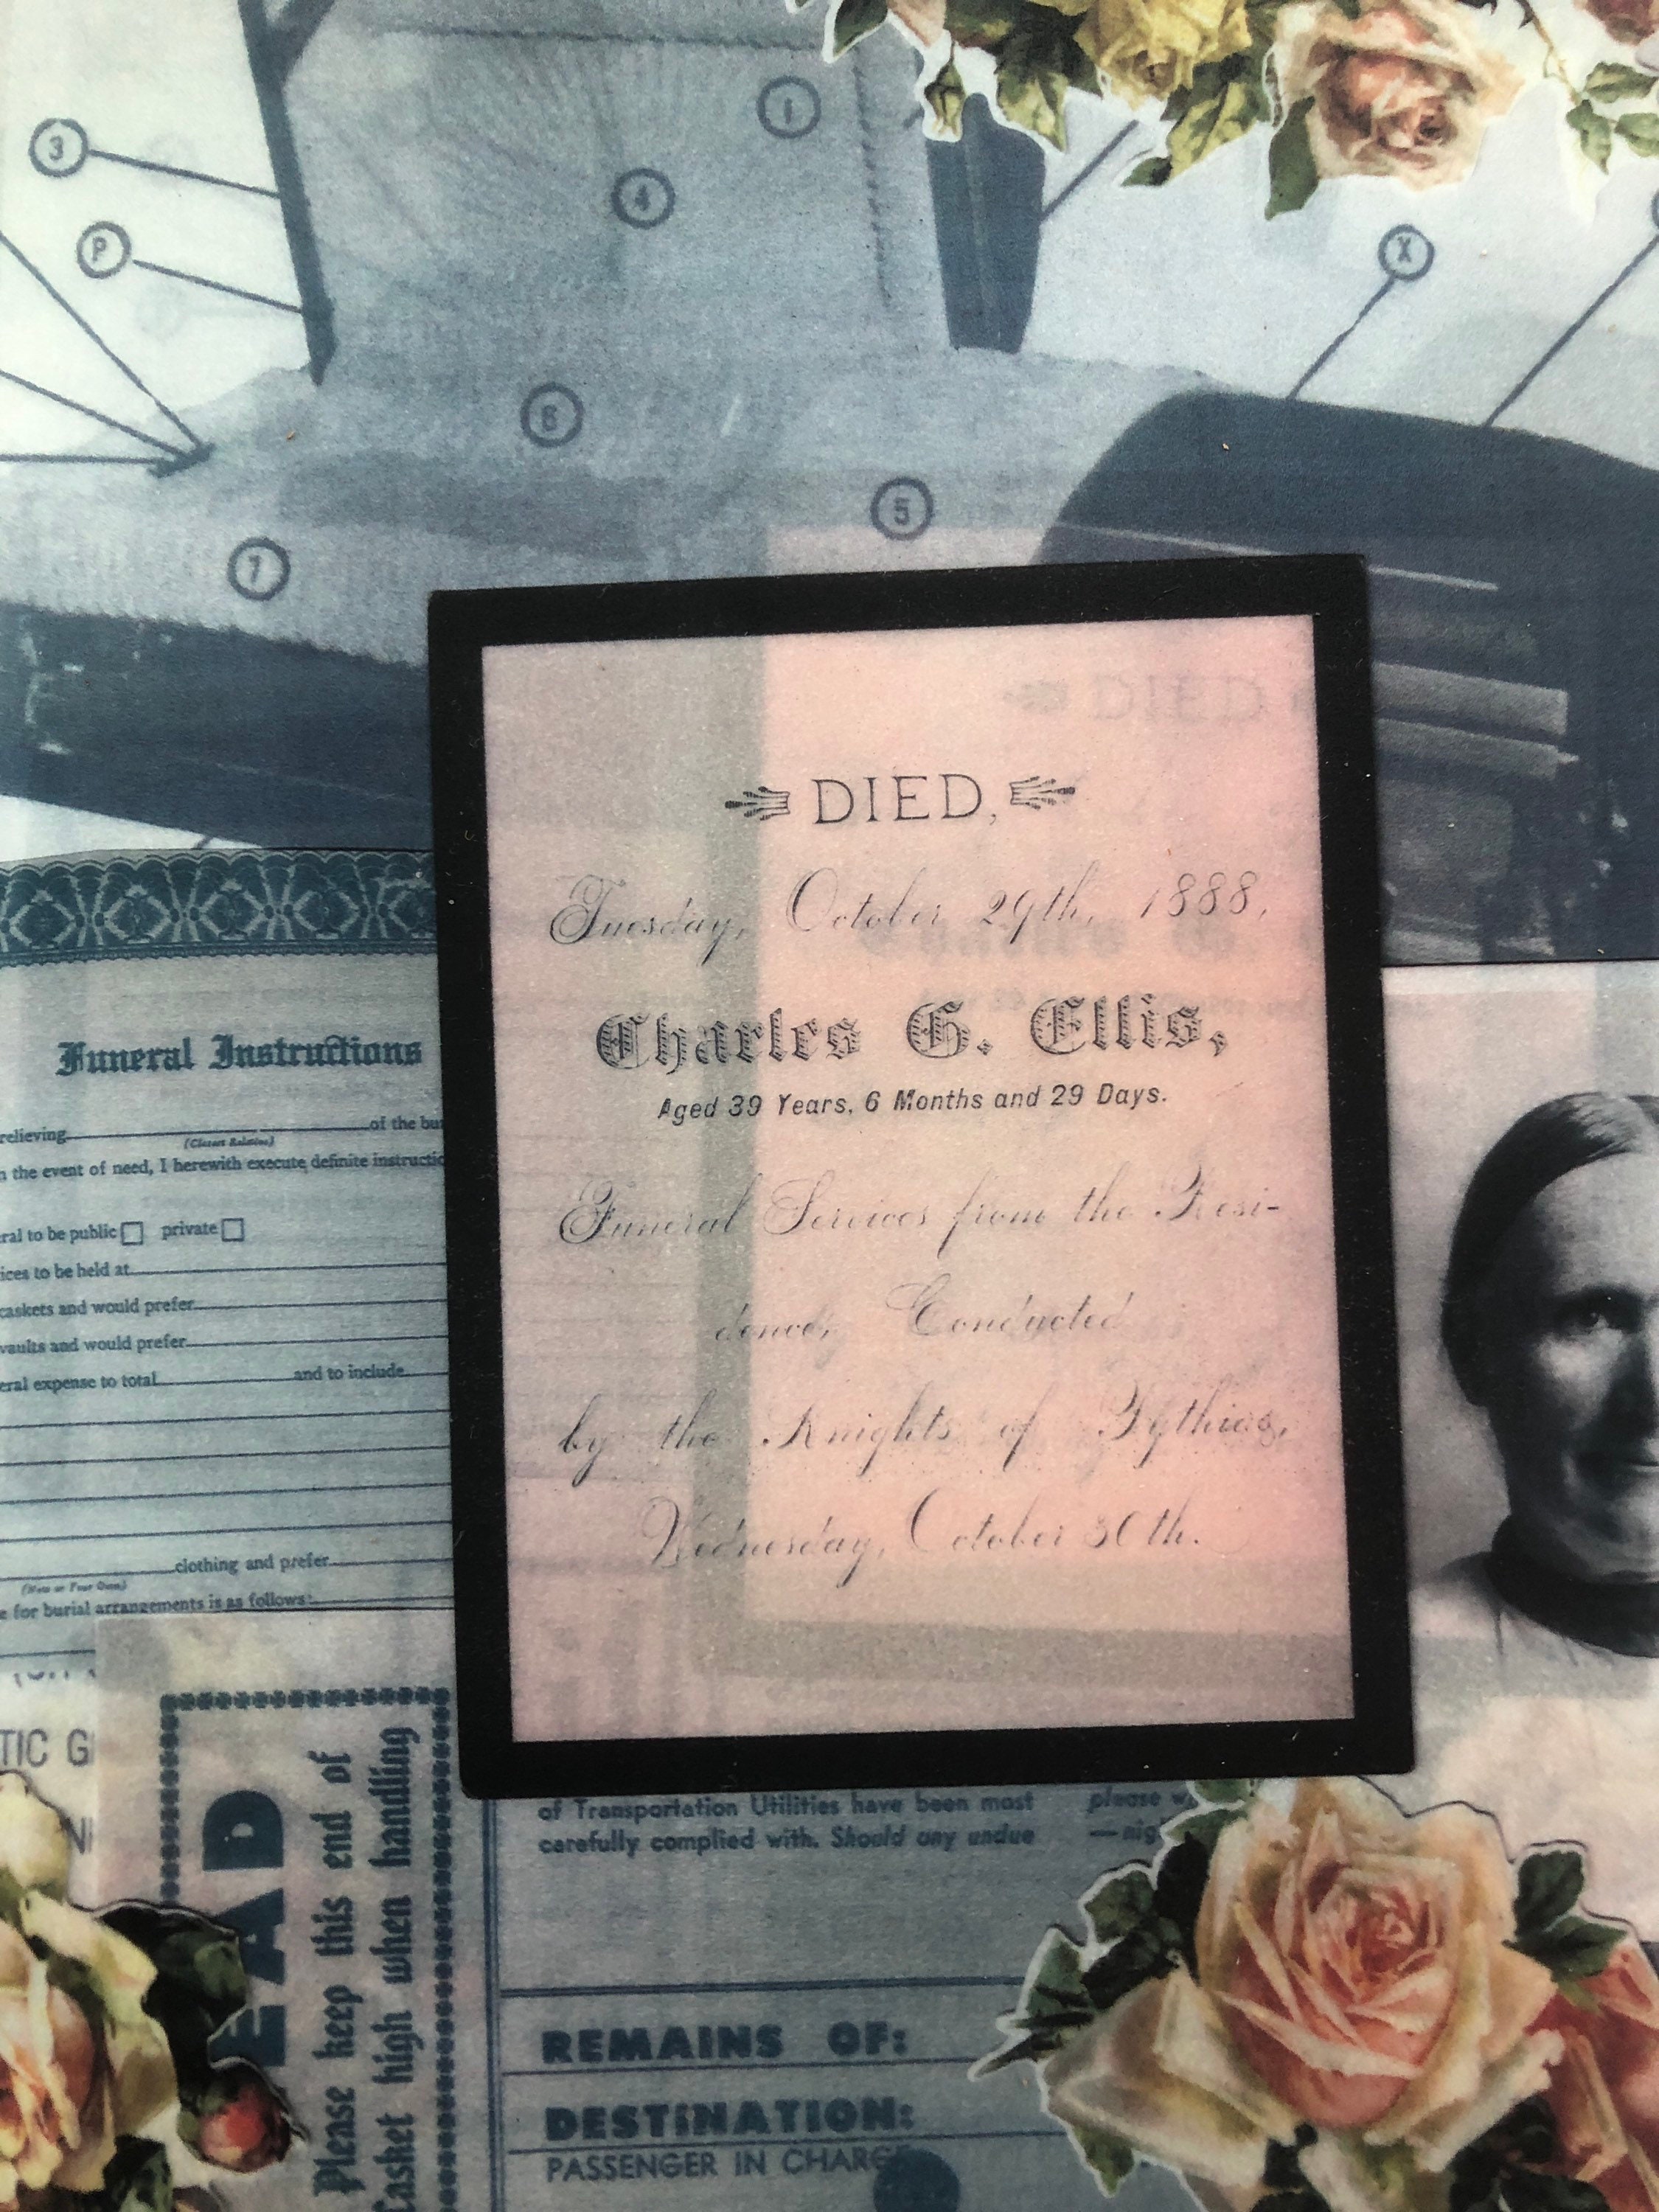 3
P
1
4
X
6
5
7
DIED
DIED,
Tuesday, October 29th, 1888,
Charles G. Ellis,
Aged 39 Years, 6 Months and 29 Days.
Funeral Services from the Resi-
dence, Conducted
by the Knights of Pythias,
Wednesday, October 30th.
Funeral Instructions
relieving of the bu
(Closest Relative)
n the event of need, I herewith execute definite instructio
ral to be public private
ices to be held at
caskets and would prefer
vaults and would prefer
eral expense to total and to include
clothing and prefer
(New or Your Own)
e for burial arrangements is as follows:
TIC G
EAD
Please keep this end of
Casket high when handling
of Transportation Utilities have been most
carefully complied with. Should any undue
please w
—nig
REMAINS OF:
DESTINATION:
PASSENGER IN CHARGE